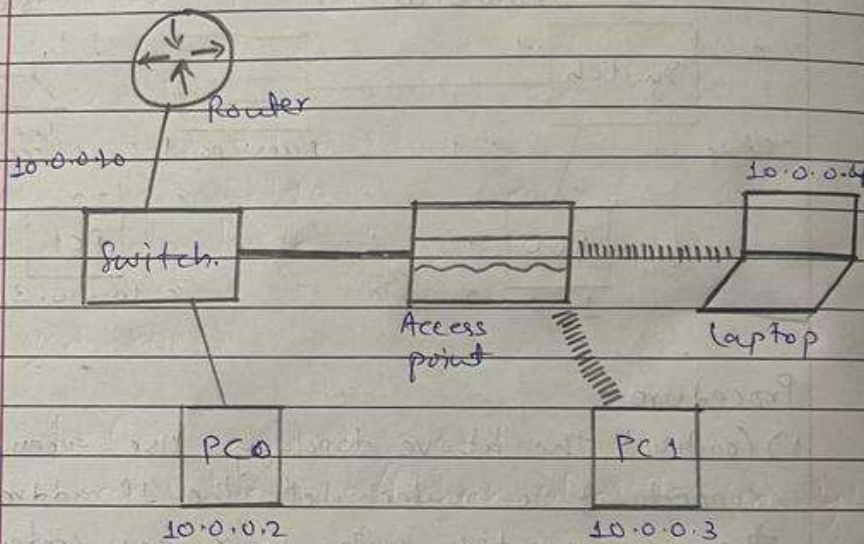 Router
10.0.0.10
10.0.0.4
Switch.
Access
point
laptop
PC0
PC1
10.0.0.2
10.0.0.3